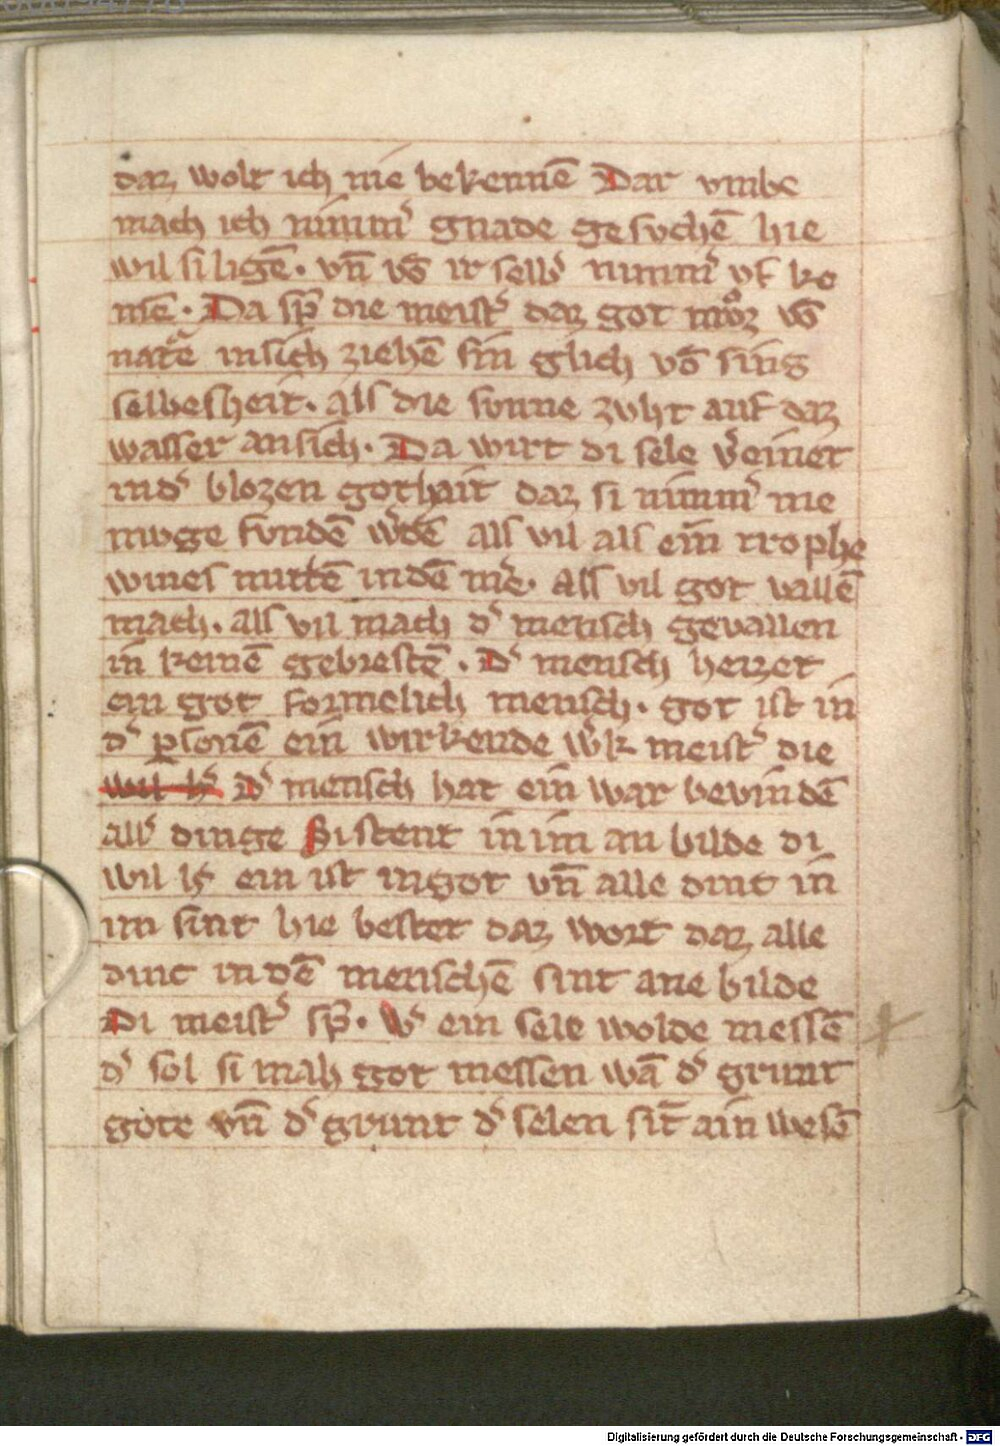 daz wolt ich nie bekennē Dar vmbe
mach ich nimm̾ gnade gesvchē hie
wil si ligē. vn̄ vō ir selb̾ nimm̾ vf ko
mē. Da sp̄ die meist̾ daz got mͦz vō
natͣe in sich ziehē sin glich vō sing
selbesheit. als die svnne zvht auf daz
wasser an sich. Da wirt di sele v̾einet
in d̾ blozen gothait daz si nimm̾ me
mvge fvndē w̾dē als vil als ein trophe
wines mittē in dē m̾e. als vil got vallē
mach. als vil mach d̾ mensch gevallen
in keinē gebrestē. D̾ mensch heizet
ein got formelich mensch. got ist in
d̾ p̱sonē ein wirkende w̾k meist̾ die
wil h̾ D̾ mensch hat ein war bevindē
all̾ dinge Si stent in im an bilde di
wil iz ein ist in got vn̄ alle dint in
im sint hie bestet daz wort daz alle
dint in dē menschē sint ane bilde
Di meist̾ sp̄. W̾ ein sele wolde messē
d̾ sol si mah got messen wā d̾ grunt
gote vn̄ d̾ grunt d̾ selen sīt ain wesē
Digitalisierung gefördert durch die Deutsche Forschungsgemeinschaft - DFG